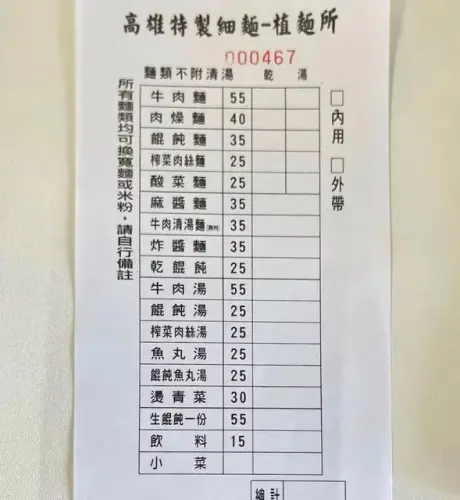 高雄特製細麵-植麵所
000467
麵類不附清湯 乾 湯
牛肉麵 55
肉燥麵 40
餛飩麵 35
榨菜肉絲麵 25
酸菜麵 25
麻醬麵 35
牛肉清湯麵(無肉) 35
炸醬麵 35
乾餛飩 25
牛肉湯 55
餛飩湯 25
榨菜肉絲湯 25
魚丸湯 25
餛飩魚丸湯 25
燙青菜 30
生餛飩一份 55
飲料 15
小菜
總計
□內用 □外帶
所有麵類均可換寬麵或米粉，請自行備註